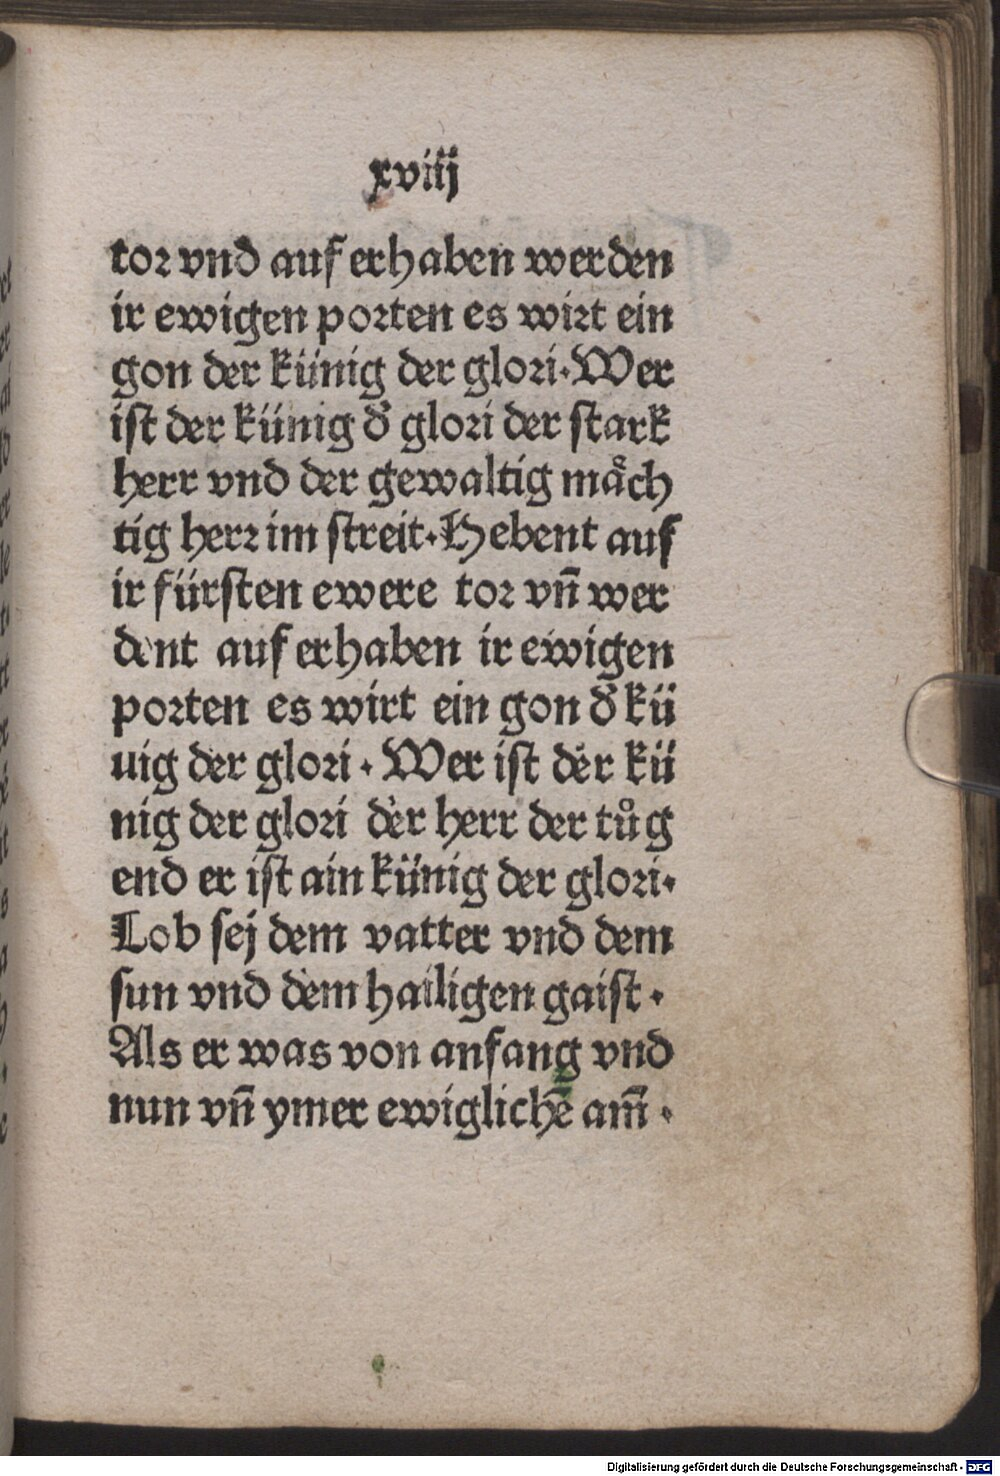 xviij
tor vnd auf erhaben werden
ir ewigen porten es wirt ein
gon der künig der glori·Wer
ist der künig d̕ glori der stark
herr vnd der gewaltig mäch
tig herr im streit·Hebent auf
ir fürsten ewere tor vn̄ wer
dent auf erhaben ir ewigen
porten es wirt ein gon d̕ kü
uig der glori · Wer ist der kü
nig der glori der herr der tůg
end er ist ain künig der glori·
Lob sej dem vatter vnd dem
sun vnd dem hailigen gaist ·
Als er was von anfang vnd
nun vn̄ ymer ewiglichē am̄ ·
Digitalisierung gefördert durch die Deutsche Forschungsgemeinschaft - DFG